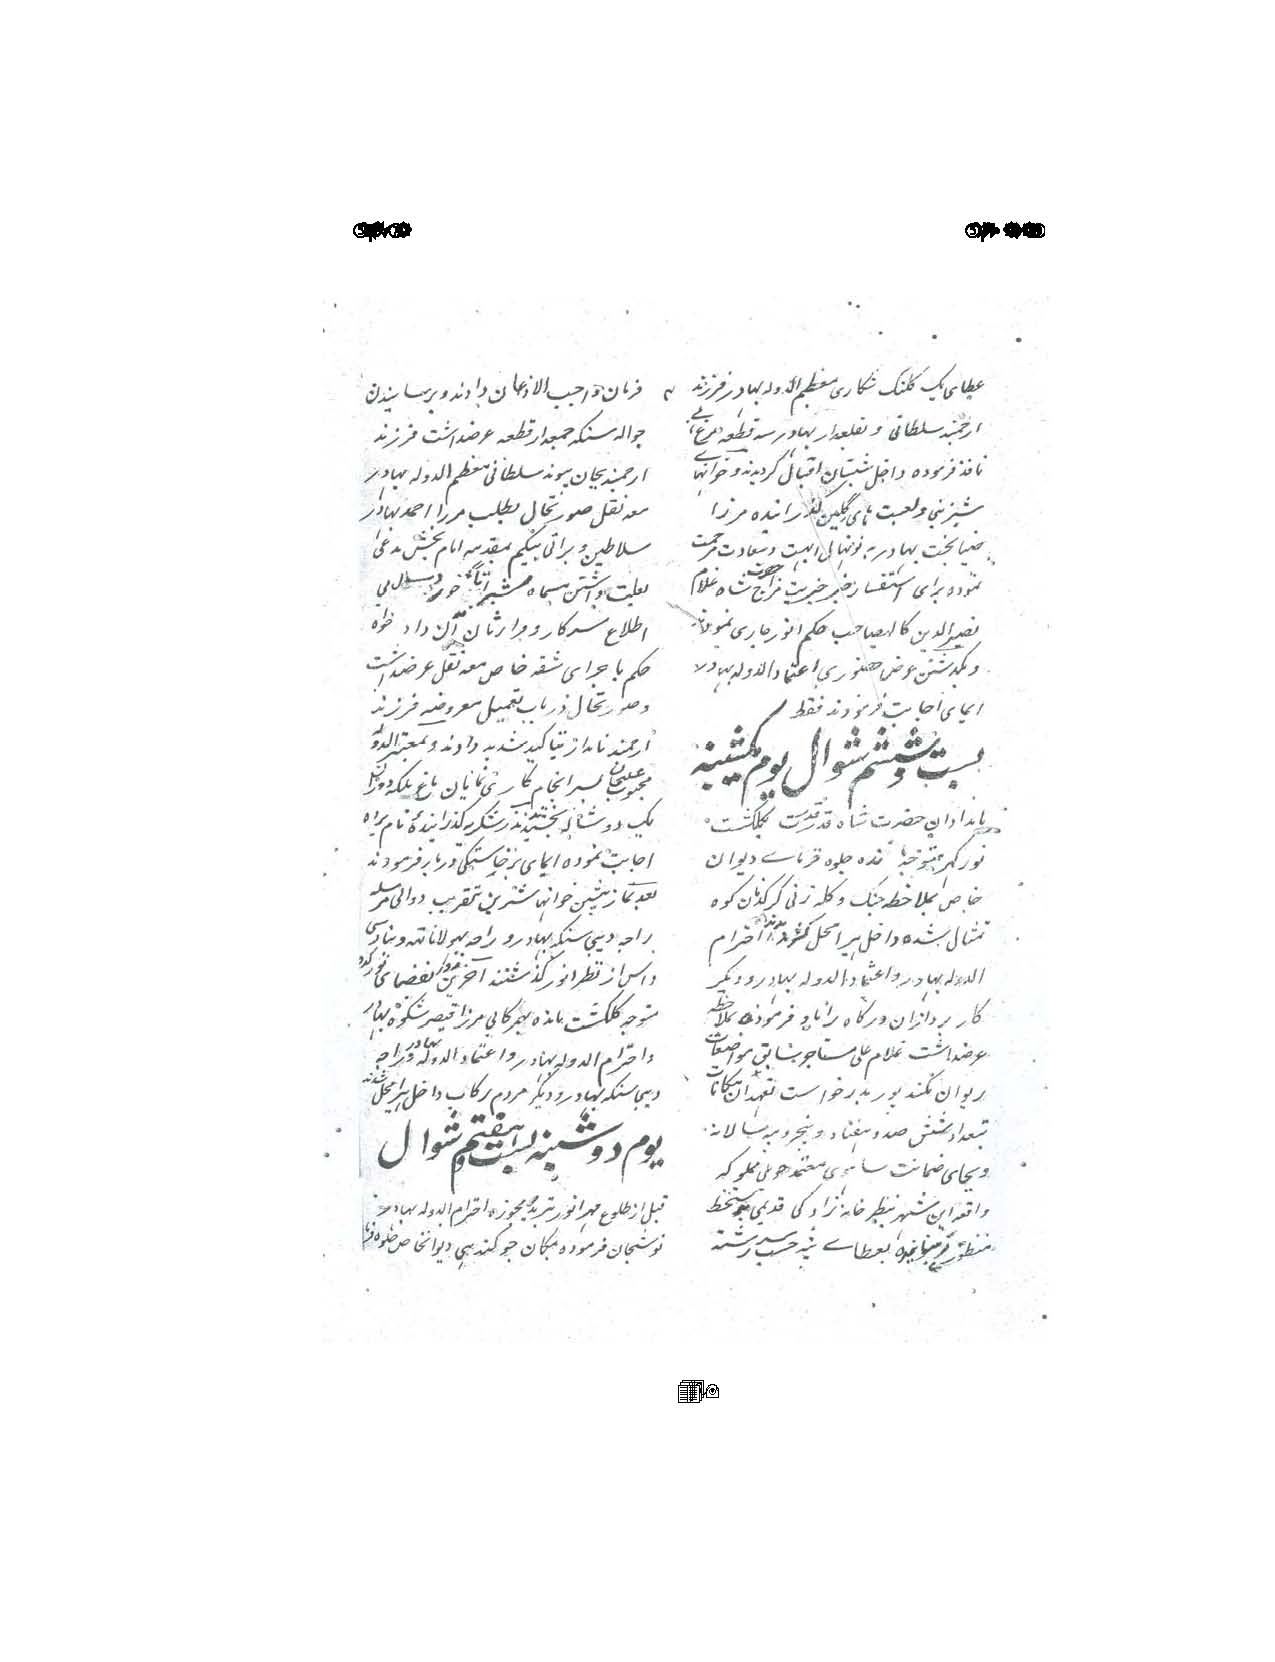 عطای یک کلنگ شکاری معظم الدوله بهادر فرزند
ارجمند سلطانی و قلعدار بهادر سه قطعه مرغابی
نافذ فرموده داخل شبستان اقبال گردیدند و خوانهای
شیرینی ولعبت های گلین گذرانیده مرزا
ضیا بخت بهادر به نونهال ابهت و سعادت مرحمت
نموده برای استفسار خبر خیریت مزاج شاه غلام
نصیر الدین کالیصاحب حکم انور جاری نمودند
و بگذشتن عرض حضوری اعتماد الدوله بهادر
ایمای اجابت فرمودند فقط
بست و ششم شوال یوم یکشنبه
بامدادان حضرت شاه قدر قدرت بگلگشت
نور گهر متوجه شده جلوه فرمای دیوان
خاص بملاحظه جنگ و کله زنی کرگدنان کوه
تمثال شده داخل بیرا محل احترام
الدوله بهادر و اعتماد الدوله بهادر و دیگر
کار پردازان درگاه را یاد فرموده بملاحظه
عرضداشت غلام علی مستاجر سابق مواضعات
بدرخواست تعهد آن مکانات
بتعداد شش صد و هفتاد و پنج روپیه سالانه
و بجای ضمانت حویلی مملوکه
واقعه این شهر بنظر خانه زاد گی قدیمی بدستخط
منظور بعطای پته حسب سررشته
فرمان واجب الاذعان دادند و برسانیدن
جواله سنگه جمعدار قطعه عرضداشت فرزند
ارجمند بجان پیوند سلطانی معظم الدوله بهادر
معه نقل صورتحال بطلب مرزا احمد بهادر
سلاطین و براتی بیگم بمقدمه امام بخش مدعی
بعلت داشتن مسماة خورد سال بی
اطلاع سرکار و وارثان آن داد خواه
حکم باجرای شقه خاص معه نقل عرضداشت
و صورتحال در باب تعمیل معروضه فرزند
ارجمند نامدار بتاکید شدید دادند و بمعتبر الدوله
محبوب علیخان بسرانجام کار نمایان باغ ملکه دوران
یک دوشاله بخشیده نذر شکریه گذرانیده نام براه
اجابت نموده ایمای برخاستگی دربار فرمودند
بعد نماز پیشین خوانها شیرینی بتقریب دوالی مرسله
راجه دیبی سنگه بهادر و راجه بهولاناتهه و بنارسی
داس از نظر انور گذشتند آخر روز بفضای نور گده
متوجه گلگشت مانده بهمرکابی مرزا قیصر شکوه بهادر
و احترام الدوله بهادر و اعتماد الدوله بهادر و راجه
دیبی سنگه بهادر و دیگر مردم رکاب داخل بیرا محل شدند
یوم دوشنبه بست و هفتم شوال
قبل از طلوع مهر انور تبرید مجوزه احترام الدوله بهادر
نوشجان فرموده بمکان جوگندهی دیوانخاص جلوه فرما